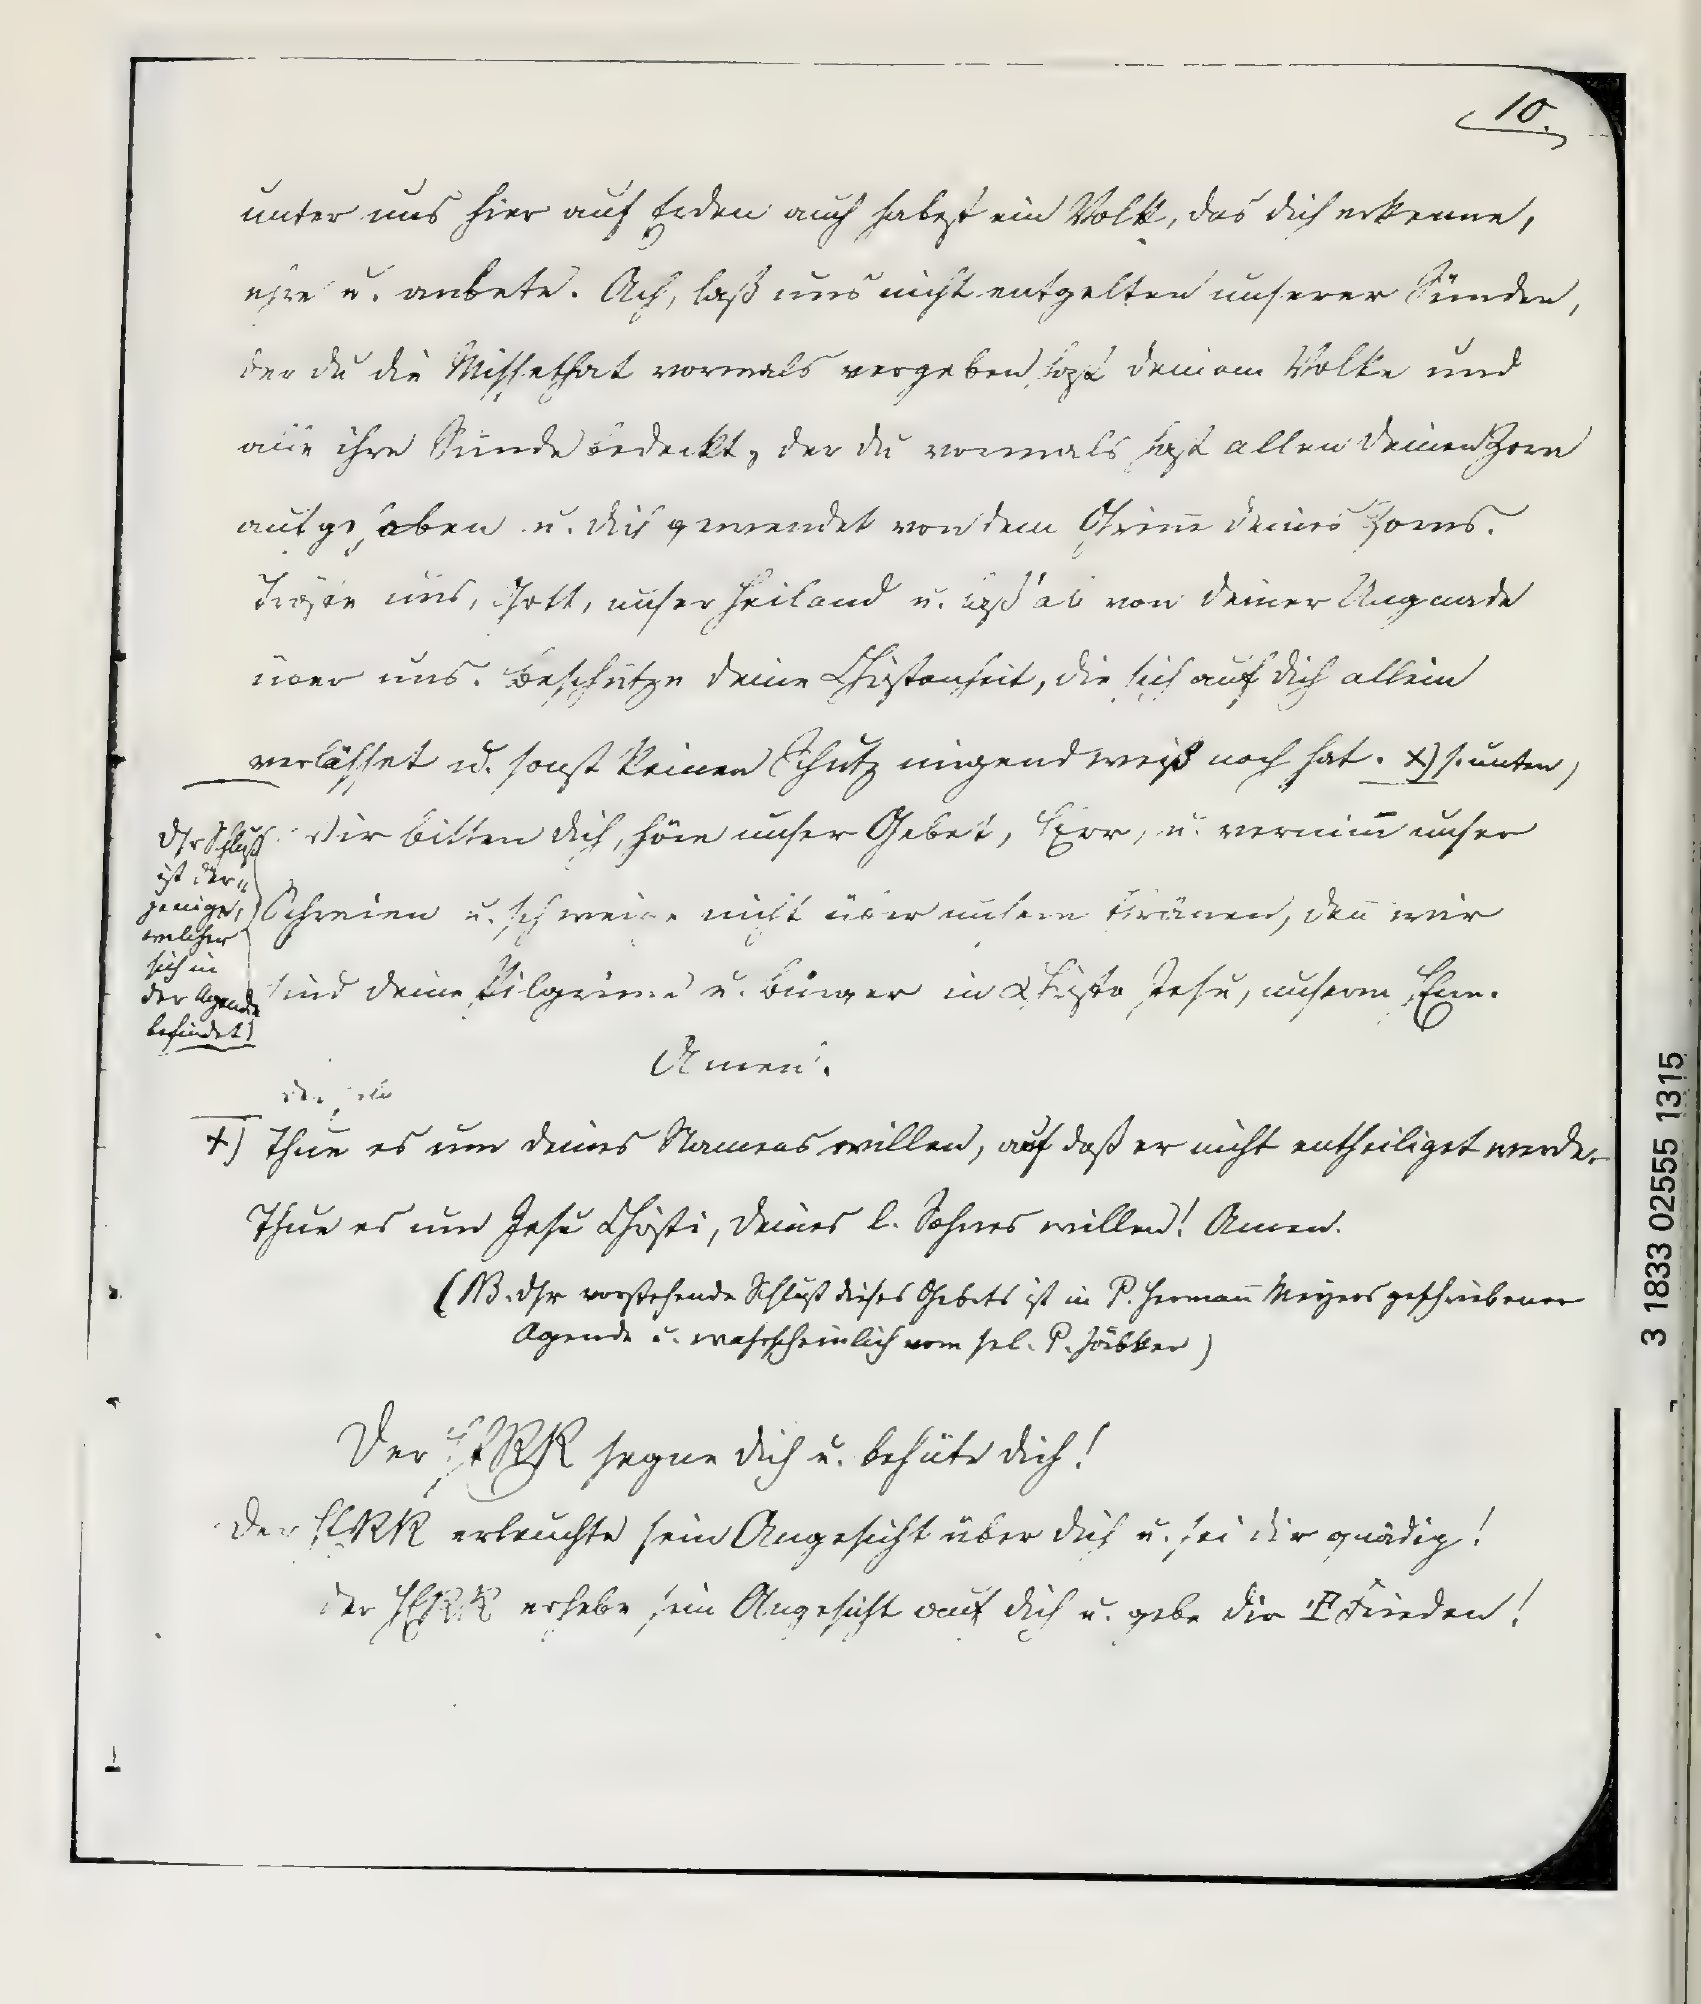 10.
unter uns hier auf Erden auch habest ein Volk, das dich erkenne,
ehre u. anbete. Ach, laß uns nicht entgelten unserer Sünden,
der du die Missethat vormals vergeben hast deinem Volke und
alle ihre Sünde bedeckt, der du vormals hast allen deinen Zorn
aufgehoben u. dich gewendet von dem Grim̄ deines Zorns.
Tröste uns, Gott, unser Heiland u. laß ab von deiner Ungnade
über uns. Beschütze deine Christenheit, die sich auf dich allein
verlässet u. sonst keinen Schutz nirgend weiß noch hat. x) s. unten,
Wir bitten dich, höre unser Gebet, HErr, u. vernim̄ unser
Schreien u. schweige nicht über unsern Thränen, den̄ wir
sind deine Pilgrime u. Bürger in Christo Jesu, unserm HErrn.
Amen.
Dsr Schluß
ist der„
jenige,
welcher
sich in
der Agende
befindet)
x) Thue es um deines Namens willen, auf daß er nicht entheiliget werde.
Thue es um Jesu Christi, deines l. Sohnes willen! Amen.
(NB. Dsr vorstehende Schluß dieses Gebets ist in P. Herman̄ Meyers geschriebener
Agende u. wahrscheinlich vom sel. P. )
Der HERR segne dich u. behüte dich!
Der HERR erleuchte sein Angesicht über dich u. sei dir gnädig!
der HERR erhebe sein Angesicht auf dich u. gebe dir Frieden!
3 1833 02555 1315